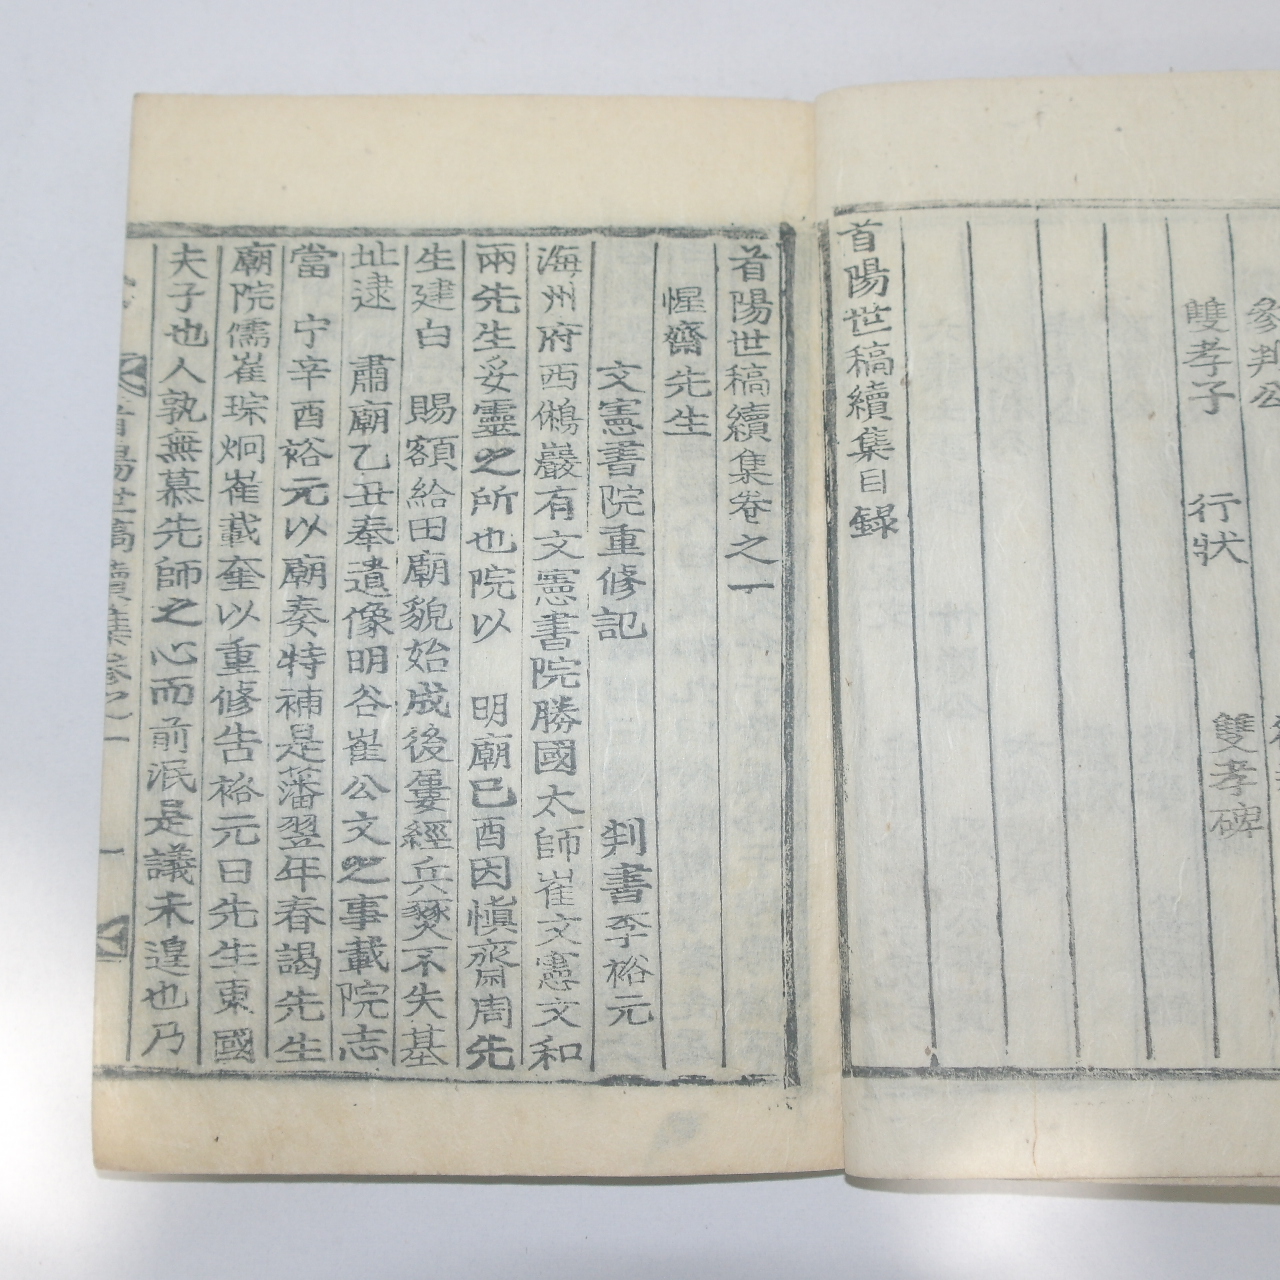 參判公
雙孝子 行狀 雙孝碑
首陽世稿續集目錄
首陽世稿續集卷之一
惺齋先生
文憲書院重修記 判書李裕元
海州府西鵂巖有文憲書院勝國太師崔文憲文和
兩先生妥靈之所也院以 明廟己酉因愼齋周先
生建白 賜額給田廟貌始成後屢經兵燹不失基
址逮 肅廟乙丑奉遺像明谷崔公文之事載院志
當 宁辛酉裕元以廟奏特補是藩翌年春謁先生
廟院儒崔琮炯崔載奎以重修告裕元曰先生東國
夫子也人孰無慕先師之心而前泯是議未遑也乃
首陽世稿續集卷之一 一